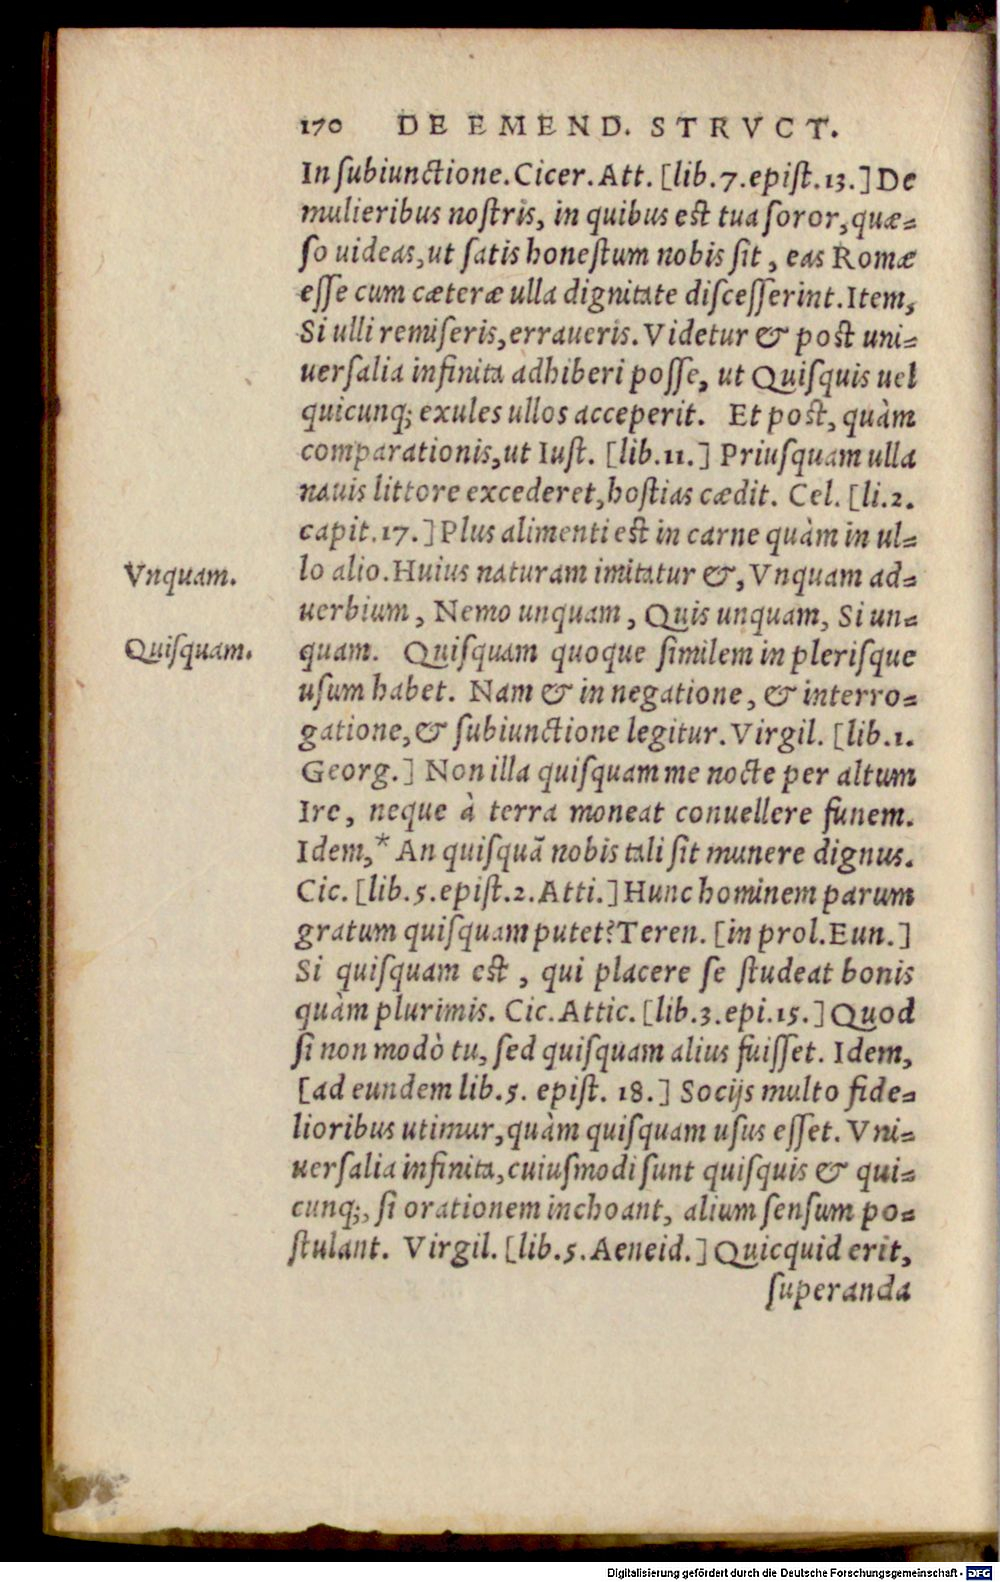 170 DE EMEND. STRVCT.
In ſubiunctione. Cicer. Att. [lib. 7. epiſt. 13.] De
mulieribus noſtris, in quibus eſt tua ſoror, quæ-
ſo uideas, ut ſatis honeſtum nobis ſit, eas Romæ
eſſe cum cæteræ ulla dignitate diſceſſerint. Item,
Si ulli remiſeris, erraueris. Videtur & poſt uni-
uerſalia infinita adhiberi poſſe, ut Quiſquis uel
quicunq; exules ullos acceperit. Et poſt, quàm
comparationis, ut Iuſt. [lib. 11.] Priuſquam ulla
nauis littore excederet, hoſtias cædit. Cel. [li. 2.
capit. 17.] Plus alimenti eſt in carne quàm in ul-
Vnquam.
lo alio. Huius naturam imitatur &, Vnquam ad-
uerbium, Nemo unquam, Quis unquam, Si un-
Quiſquam.
quam. Quiſquam quoque ſimilem in pleriſque
uſum habet. Nam & in negatione, & interro-
gatione, & ſubiunctione legitur. Virgil. [lib. 1.
Georg.] Non illa quiſquam me nocte per altum
Ire, neque à terra moneat conuellere funem.
Idem,* An quiſquã nobis tali ſit munere dignus.
Cic. [lib. 5. epiſt. 2. Atti.] Hunc hominem parum
gratum quiſquam putet? Teren. [in prol. Eun.]
Si quiſquam eſt, qui placere ſe ſtudeat bonis
quàm plurimis. Cic. Attic. [lib. 3. epi. 15.] Quod
ſi non modò tu, ſed quiſquam alius fuiſſet. Idem,
[ad eundem lib. 5. epiſt. 18.] Socijs multo fide-
lioribus utimur, quàm quiſquam uſus eſſet. Vni-
uerſalia infinita, cuiuſmodi ſunt quiſquis & qui-
cunq;, ſi orationem inchoant, alium ſenſum po-
ſtulant. Virgil. [lib. 5. Aeneid.] Quicquid erit,
ſuperanda
Digitalisierung gefördert durch die Deutsche Forschungsgemeinschaft - DFG